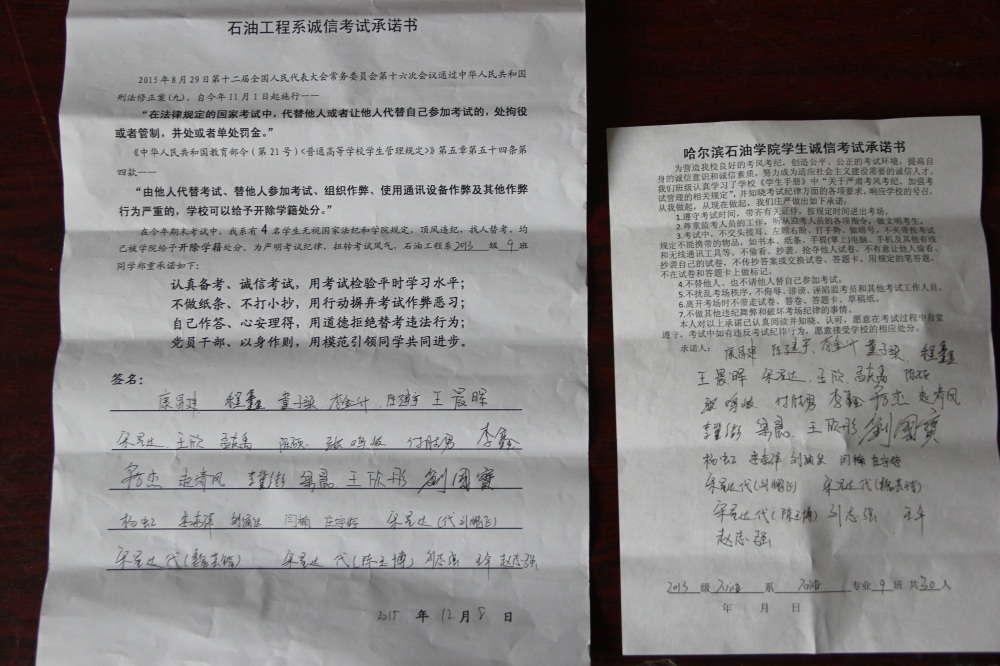 石油工程系诚信考试承诺书
2015年8月29日第十二届全国人民代表大会常务委员会第十六次会议通过中华人民共和国
刑法修正案(九),自今年11月1日起施行——
“在法律规定的国家考试中,代替他人或者让他人代替自己参加考试的,处拘役
或者管制,并处或者单处罚金。”
《中华人民共和国教育部令(第21号)<普通高等学校学生管理规定>》第五章第五十四条第
四款——
“由他人代替考试、替他人参加考试、组织作弊、使用通讯设备作弊及其他作弊
行为严重的,学校可以给予开除学籍处分。”
在今年期末考试中,我系有4名学生无视国家法纪和学院规定,顶风违纪,找人替考,均
已被学院给予开除学籍处分。为严明考试纪律,扭转考试风气,石油工程系2013级9班
同学郑重承诺如下:
认真备考、诚信考试,用考试检验平时学习水平;
不做纸条、不打小抄,用行动摒弃考试作弊恶习;
自己作答、心安理得,用道德拒绝替考违法行为;
党员干部、以身作则,用模范引领同学共同进步。
签名:
程鑫 王晨晖
宋星达 王欣 陈硕 张鸣 付胜男 李鑫
王欣彤 劉國寶
杨虹 闫楠 宋星达(代刘鹏飞)
宋星达代 宋星达代(陈玉博) 刘志强 赵志强
2015年12月8日
哈尔滨石油学院学生诚信考试承诺书
为营造我校良好的考风考纪,创造公平、公正的考试环境,提高自
身的诚信意识和诚信素质,努力成为适应社会主义建设需要的诚信人才,
我们班级认真学习了学校《学生手册》中“关于严肃考风考纪、加强考
试管理的相关规定”,并知晓考试纪律方面的各项要求,响应学校的号召,
从我做起,从现在做起,我们庄严做出如下承诺:
1.遵守考试时间,带齐有关证件,按规定时间进出考场。
2.尊重监考人员的工作,听从监考人员的各项指令,做文明考生。
3.考试中,不交头接耳、左顾右盼、打手势、做暗号,不夹带按考试
规定不能携带的物品,如书本、纸条、手提(掌上)电脑、手机及其他有线
和无线通讯工具等。不偷看、抄袭、抢夺他人试卷,不有意让他人偷看、
抄袭自己的试卷,不传抄答案或交换试卷、答题卡,用规定的笔答题,
不在试卷和答题卡上做标记。
4.不替他人、也不请他人替自己参加考试。
5.不扰乱考场秩序,不侮辱、诽谤、诬陷监考员和其他考试工作人员。
6.离开考场时不带走试卷、答卷、答题卡、草稿纸。
7.不做其他违纪舞弊和破坏考场纪律的事情。
本人对以上承诺已认真阅读并知晓、认可,愿意在考试过程中自觉
遵守,考试中如有违反考试纪律行为,愿意接受学校的相应处分。
承诺人: 程鑫
王晨晖 宋星达 王欣 陈硕
张鸣 付胜男 李鑫
王欣彤 劉國寶
杨虹 闫楠
宋星达代(刘鹏飞) 宋星达代
宋星达代(陈玉博) 刘志强
赵志强
2013级石油系石油专业9班共30人
年 月 日